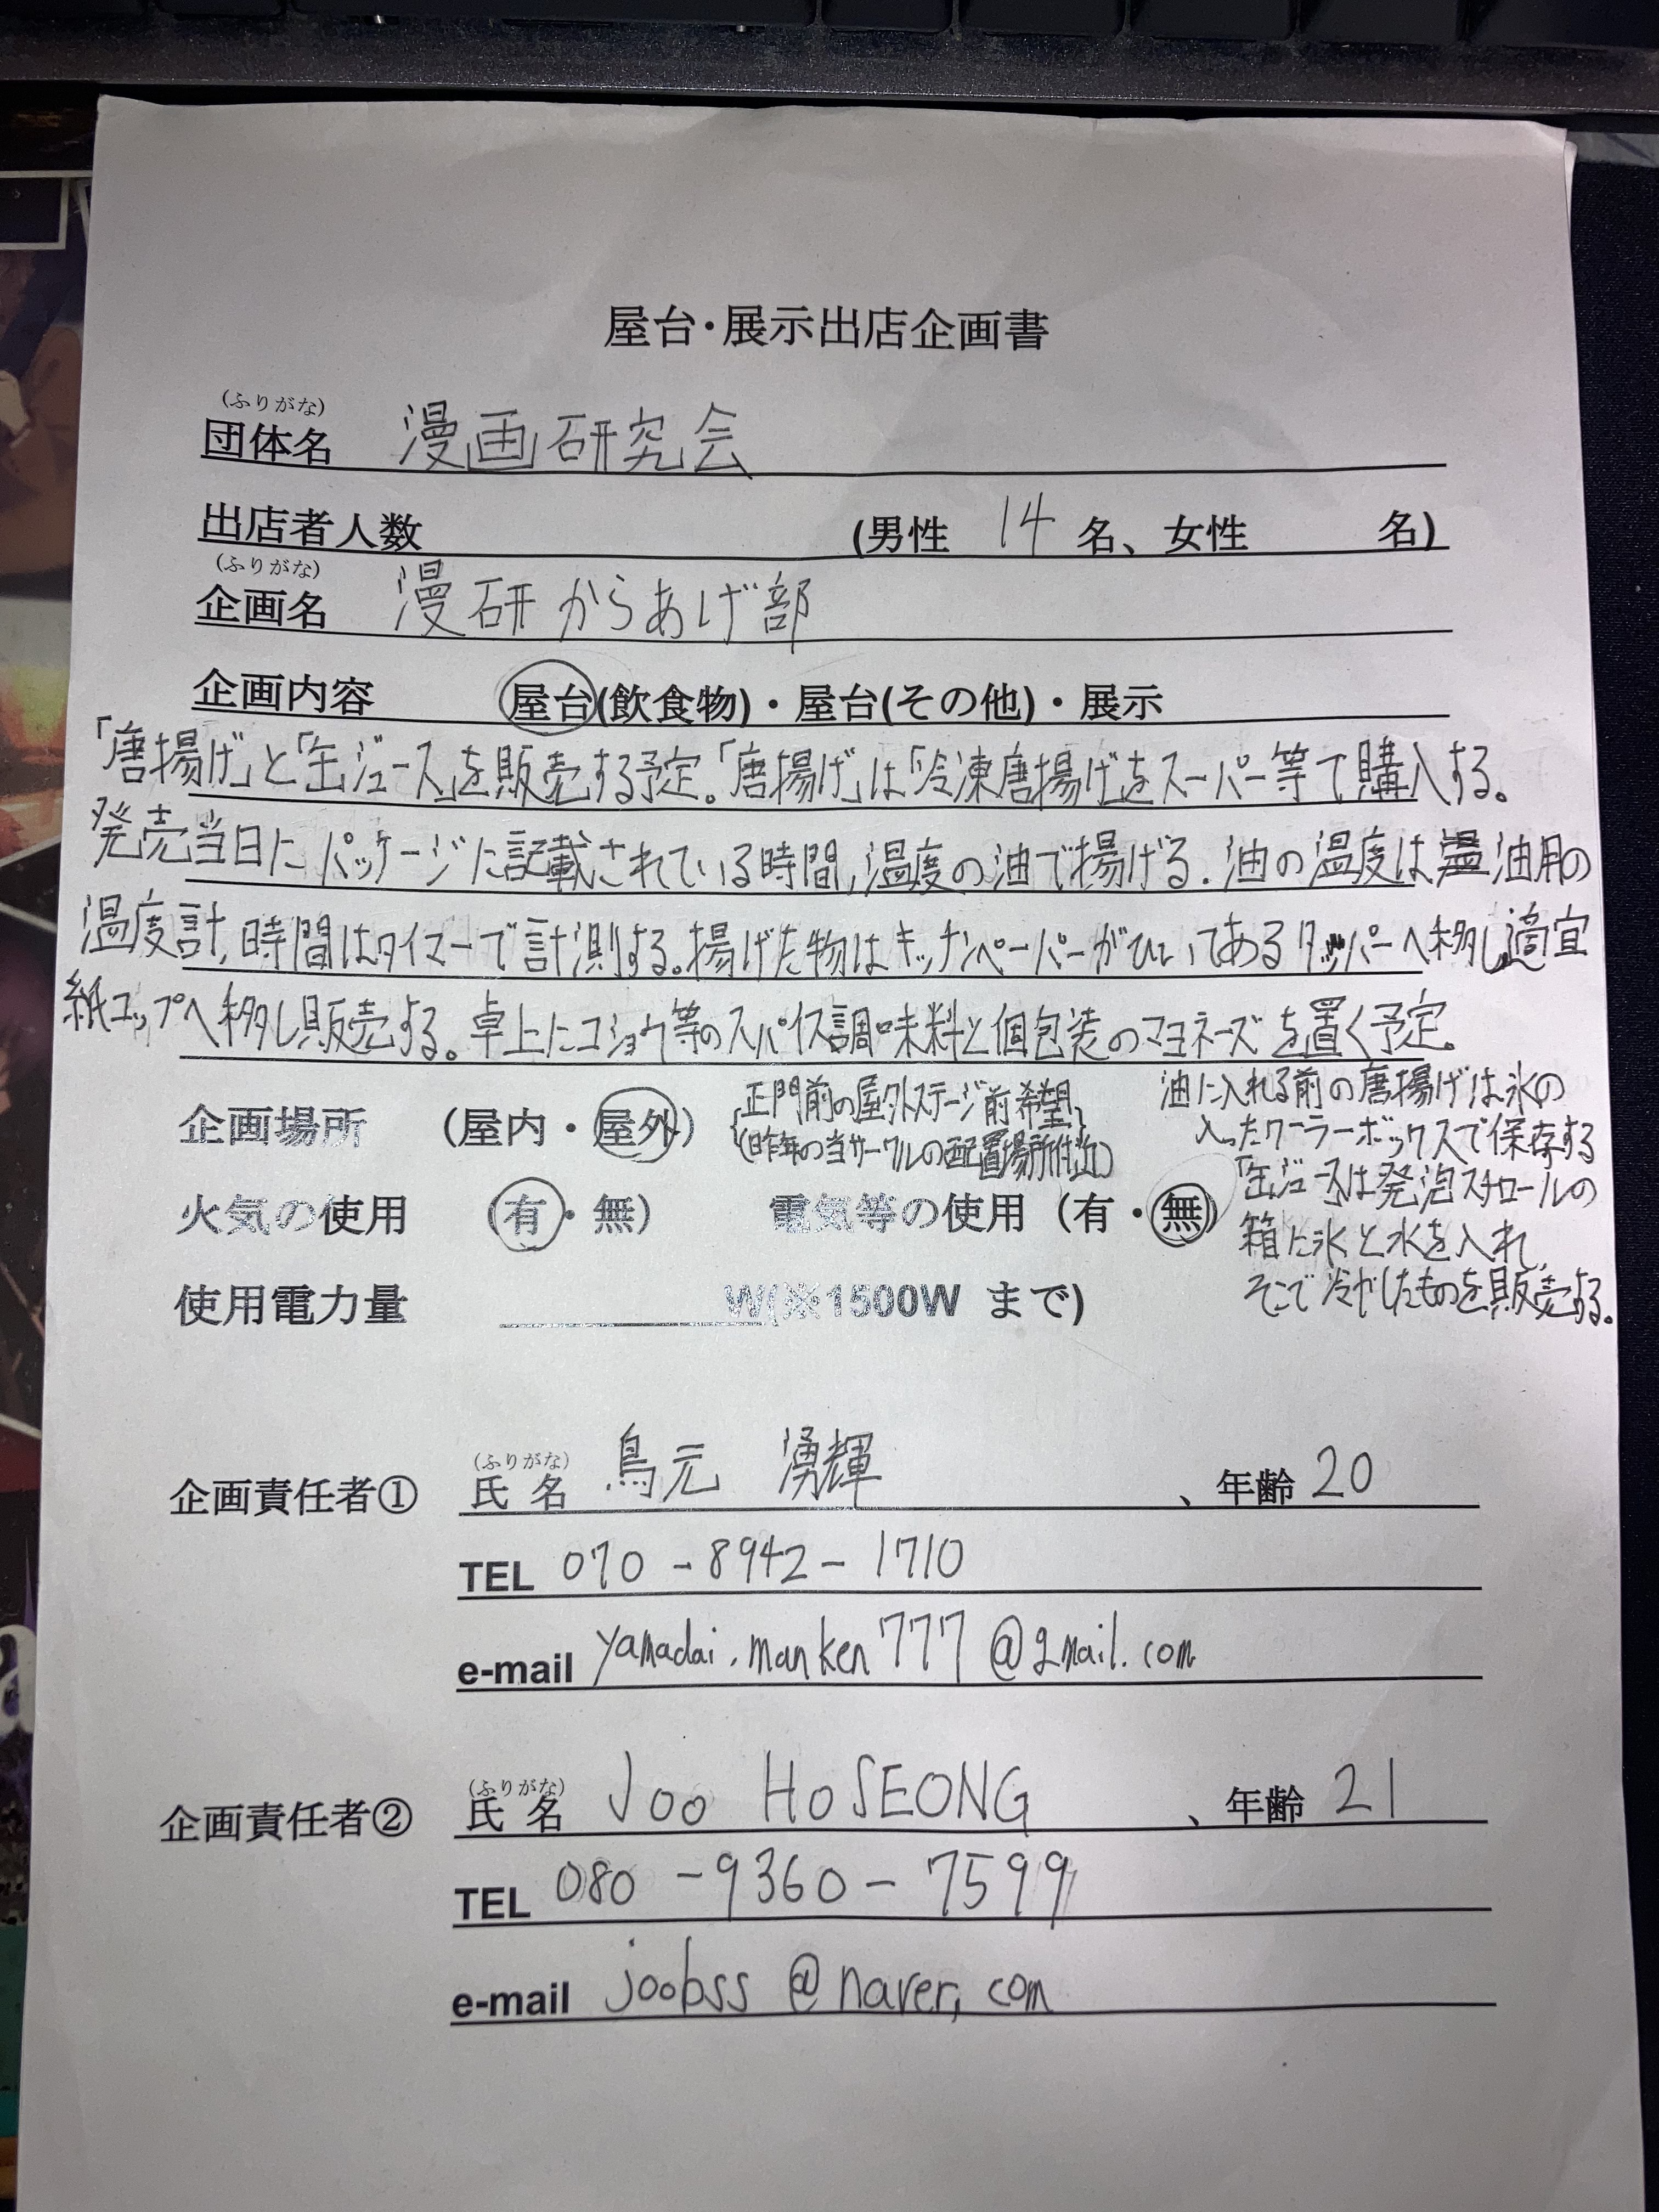 屋台・展示出店企画書
(ふりがな)
団体名 漫画研究会
出店者人数 (男性 14 名、女性 名)
(ふりがな)
企画名 漫研からあげ部
企画内容 屋台(飲食物)・屋台(その他)・展示
「唐揚げ」と「缶ジュース」を販売する予定。「唐揚げ」は「冷凍唐揚げ」をスーパー等で購入する。
発売当日にパッケージに記載されている時間,温度の油で揚げる。油の温度は油用の
温度計,時間はタイマーで計測する。揚げた物はキッチンペーパーがひいてあるタッパーへ移し適宜
紙コップへ移し販売する。卓上にコショウ等のスパイス調味料と個包装のマヨネーズを置く予定。
企画場所 (屋内・屋外)
{正門前の屋外ステージ前希望}
(昨年の当サークルの配置場所付近)
油に入れる前の唐揚げは氷の
入ったクーラーボックスで保存する
「缶ジュース」は発泡スチロールの
箱に氷と水を入れ,
そこで冷やしたものを販売する。
火気の使用 (有・無) 電気等の使用 (有・無)
使用電力量 W(※1500W まで)
企画責任者① (ふりがな) 氏名 鳥元 湧輝 、年齢 20
TEL 070-8942-1710
e-mail yamadai.manken777@gmail.com
企画責任者② (ふりがな) 氏名 Joo HoSEONG 、年齢 21
TEL 080-9360-7599
e-mail joobss@naver.com